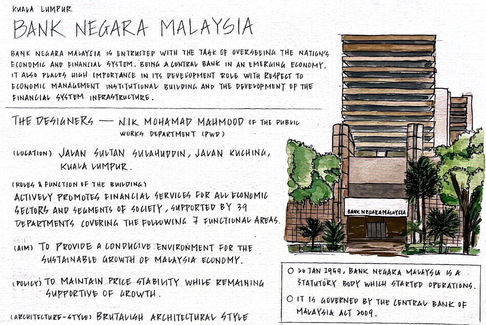 KUALA LUMPUR
BANK NEGARA MALAYSIA
BANK NEGARA MALAYSIA IS ENTRUSTED WITH THE TASK OF OVERSEEING THE NATION'S
ECONOMIC AND FINANCIAL SYSTEM. BEING A CENTRAL BANK IN AN EMERGING ECONOMY.
IT ALSO PLACES HIGH IMPORTANCE IN ITS DEVELOPMENT ROLE WITH RESPECT TO
ECONOMIC MANAGEMENT INSTITUTIONAL BUILDING AND THE DEVELOPMENT OF THE
FINANCIAL SYSTEM INFRASTRUCTURE.
THE DESIGNERS — NIK MOHAMAD MAHMOOD OF THE PUBLIC
WORKS DEPARTMENT (PWD)
(LOCATION) JALAN SULTAN SULAHUDDIN, JALAN KUCHING,
KUALA LUMPUR.
(ROLES & FUNCTION OF THE BUILDING)
ACTIVELY PROMOTES FINANCIAL SERVICES FOR ALL ECONOMIC
SECTORS AND SEGMENTS OF SOCIETY, SUPPORTED BY 39
DEPARTMENTS COVERING THE FOLLOWING 7 FUNCTIONAL AREAS.
(AIM) TO PROVIDE A CONDUCIVE ENVIRONMENT FOR THE
SUSTAINABLE GROWTH OF MALAYSIA ECONOMY.
(POLICY) TO MAINTAIN PRICE STABILITY WHILE REMAINING
SUPPORTIVE OF GROWTH.
(ARCHITECTURE-STYLE) BRUTALISH ARCHITECTURAL STYLE
BANK NEGARA MALAYSIA
JAN 1959, BANK NEGARA MALAYSIA IS A
STATUTORY BODY WHICH STARTED OPERATIONS.
IT IS GOVERNED BY THE CENTRAL BANK OF
MALAYSIA ACT 2009.